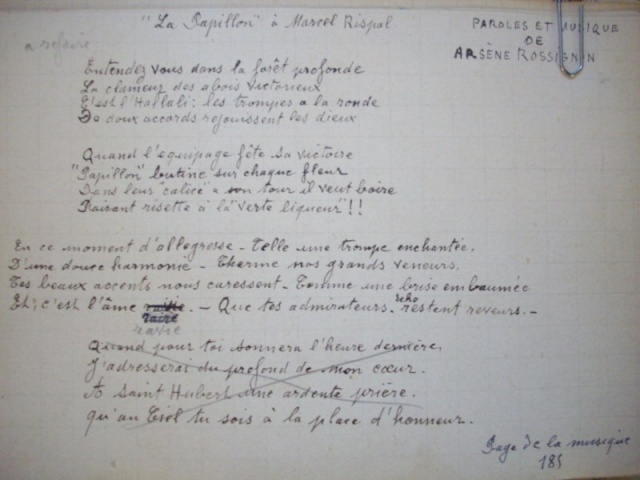 "La Papillon" à Marcel Rispal
PAROLES ET MUSIQUE
DE
ARSÈNE ROSSIGNON
a refaire
Entendez vous dans la forêt profonde
La clameur des abois victorieux
C'est l'Hallali: les trompes a la ronde
De doux accords rejouissent les dieux
Quand l'equipage fête sa victoire
"Papillon" butine sur chaque fleur
Dans leur "calice" a son tour il veut boire
Faisant risette à la "verte liqueur"!!
En ce moment d'allegresse - Telle une trompe enchantée.
D'une douce harmonie - Charme nos grands veneurs.
Tes beaux accents nous caressent - Comme une brise embaumée
Et, c'est l'âme ravie. - Que tes admirateurs. restent reveurs. -
ravie
Quand pour toi sonnera l'heure dernière,
J'adresserai du profond de mon cœur.
A Saint Hubert une ardente prière.
qu'au Ciel tu sois à la place d'honneur.
Page de la musique
185